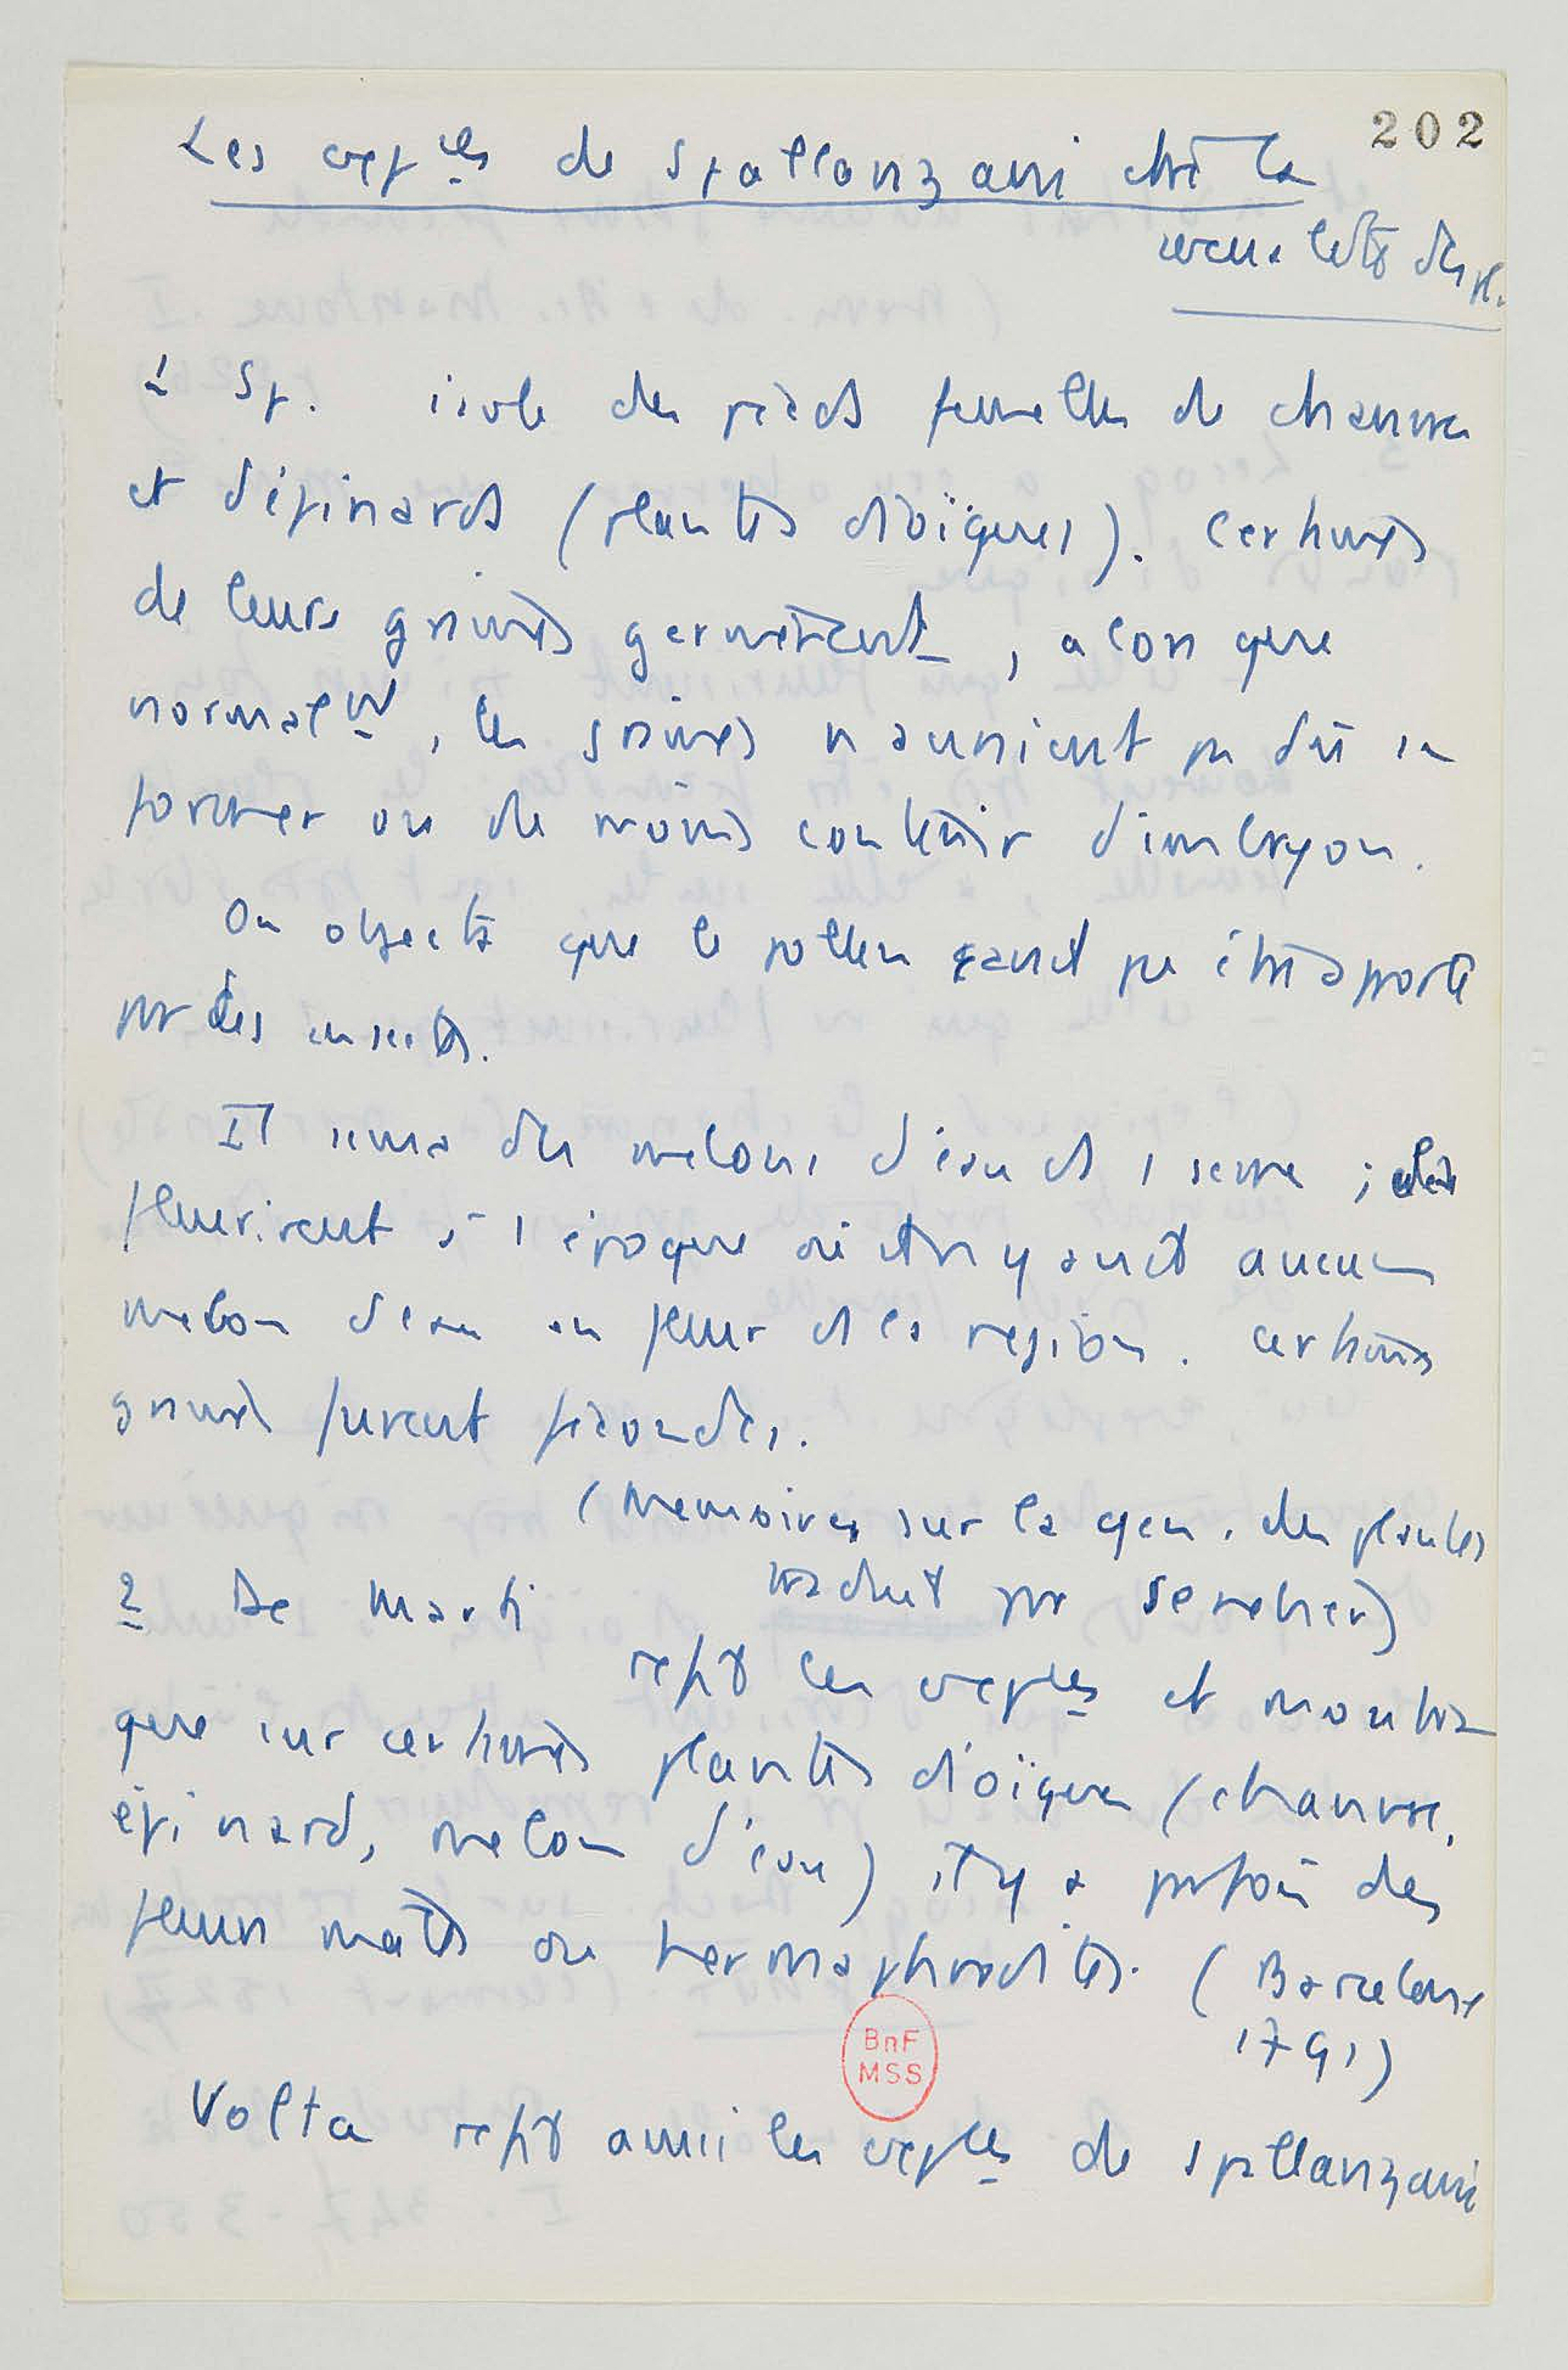 202
Les exp^ces de Spallanzani contre la
sexualité des pl.
1 Sp. isole des pieds femelles de chanvres
et d'épinards (plantes dioïques). Certaines
de leurs graines germèrent, alors que
normalemt, les graines n'auraient pu dû se
former ou du moins contenir d'embryon.
On objecta que le pollen avait pu être apporté
par des insectes.
Il sema des melons d'eau ds 1 serre ; elles
fleurirent à 1 époque où il n'y avait aucun
melon d'eau en fleur ds la région. Certaines
graines furent fécondes.
(Memoires sur la gen. des plantes
traduit par Senebier)
2 De Marti
refit les exp^ces et montra
que sur certaines plantes dioïques (chanvre,
épinard, melon d'eau) il y a parfois des
fleurs mâles ou hermaphrodites. (Barcelone
1791)
BnF
MSS
Volta refit aussi les exp^ces de Spallanzani